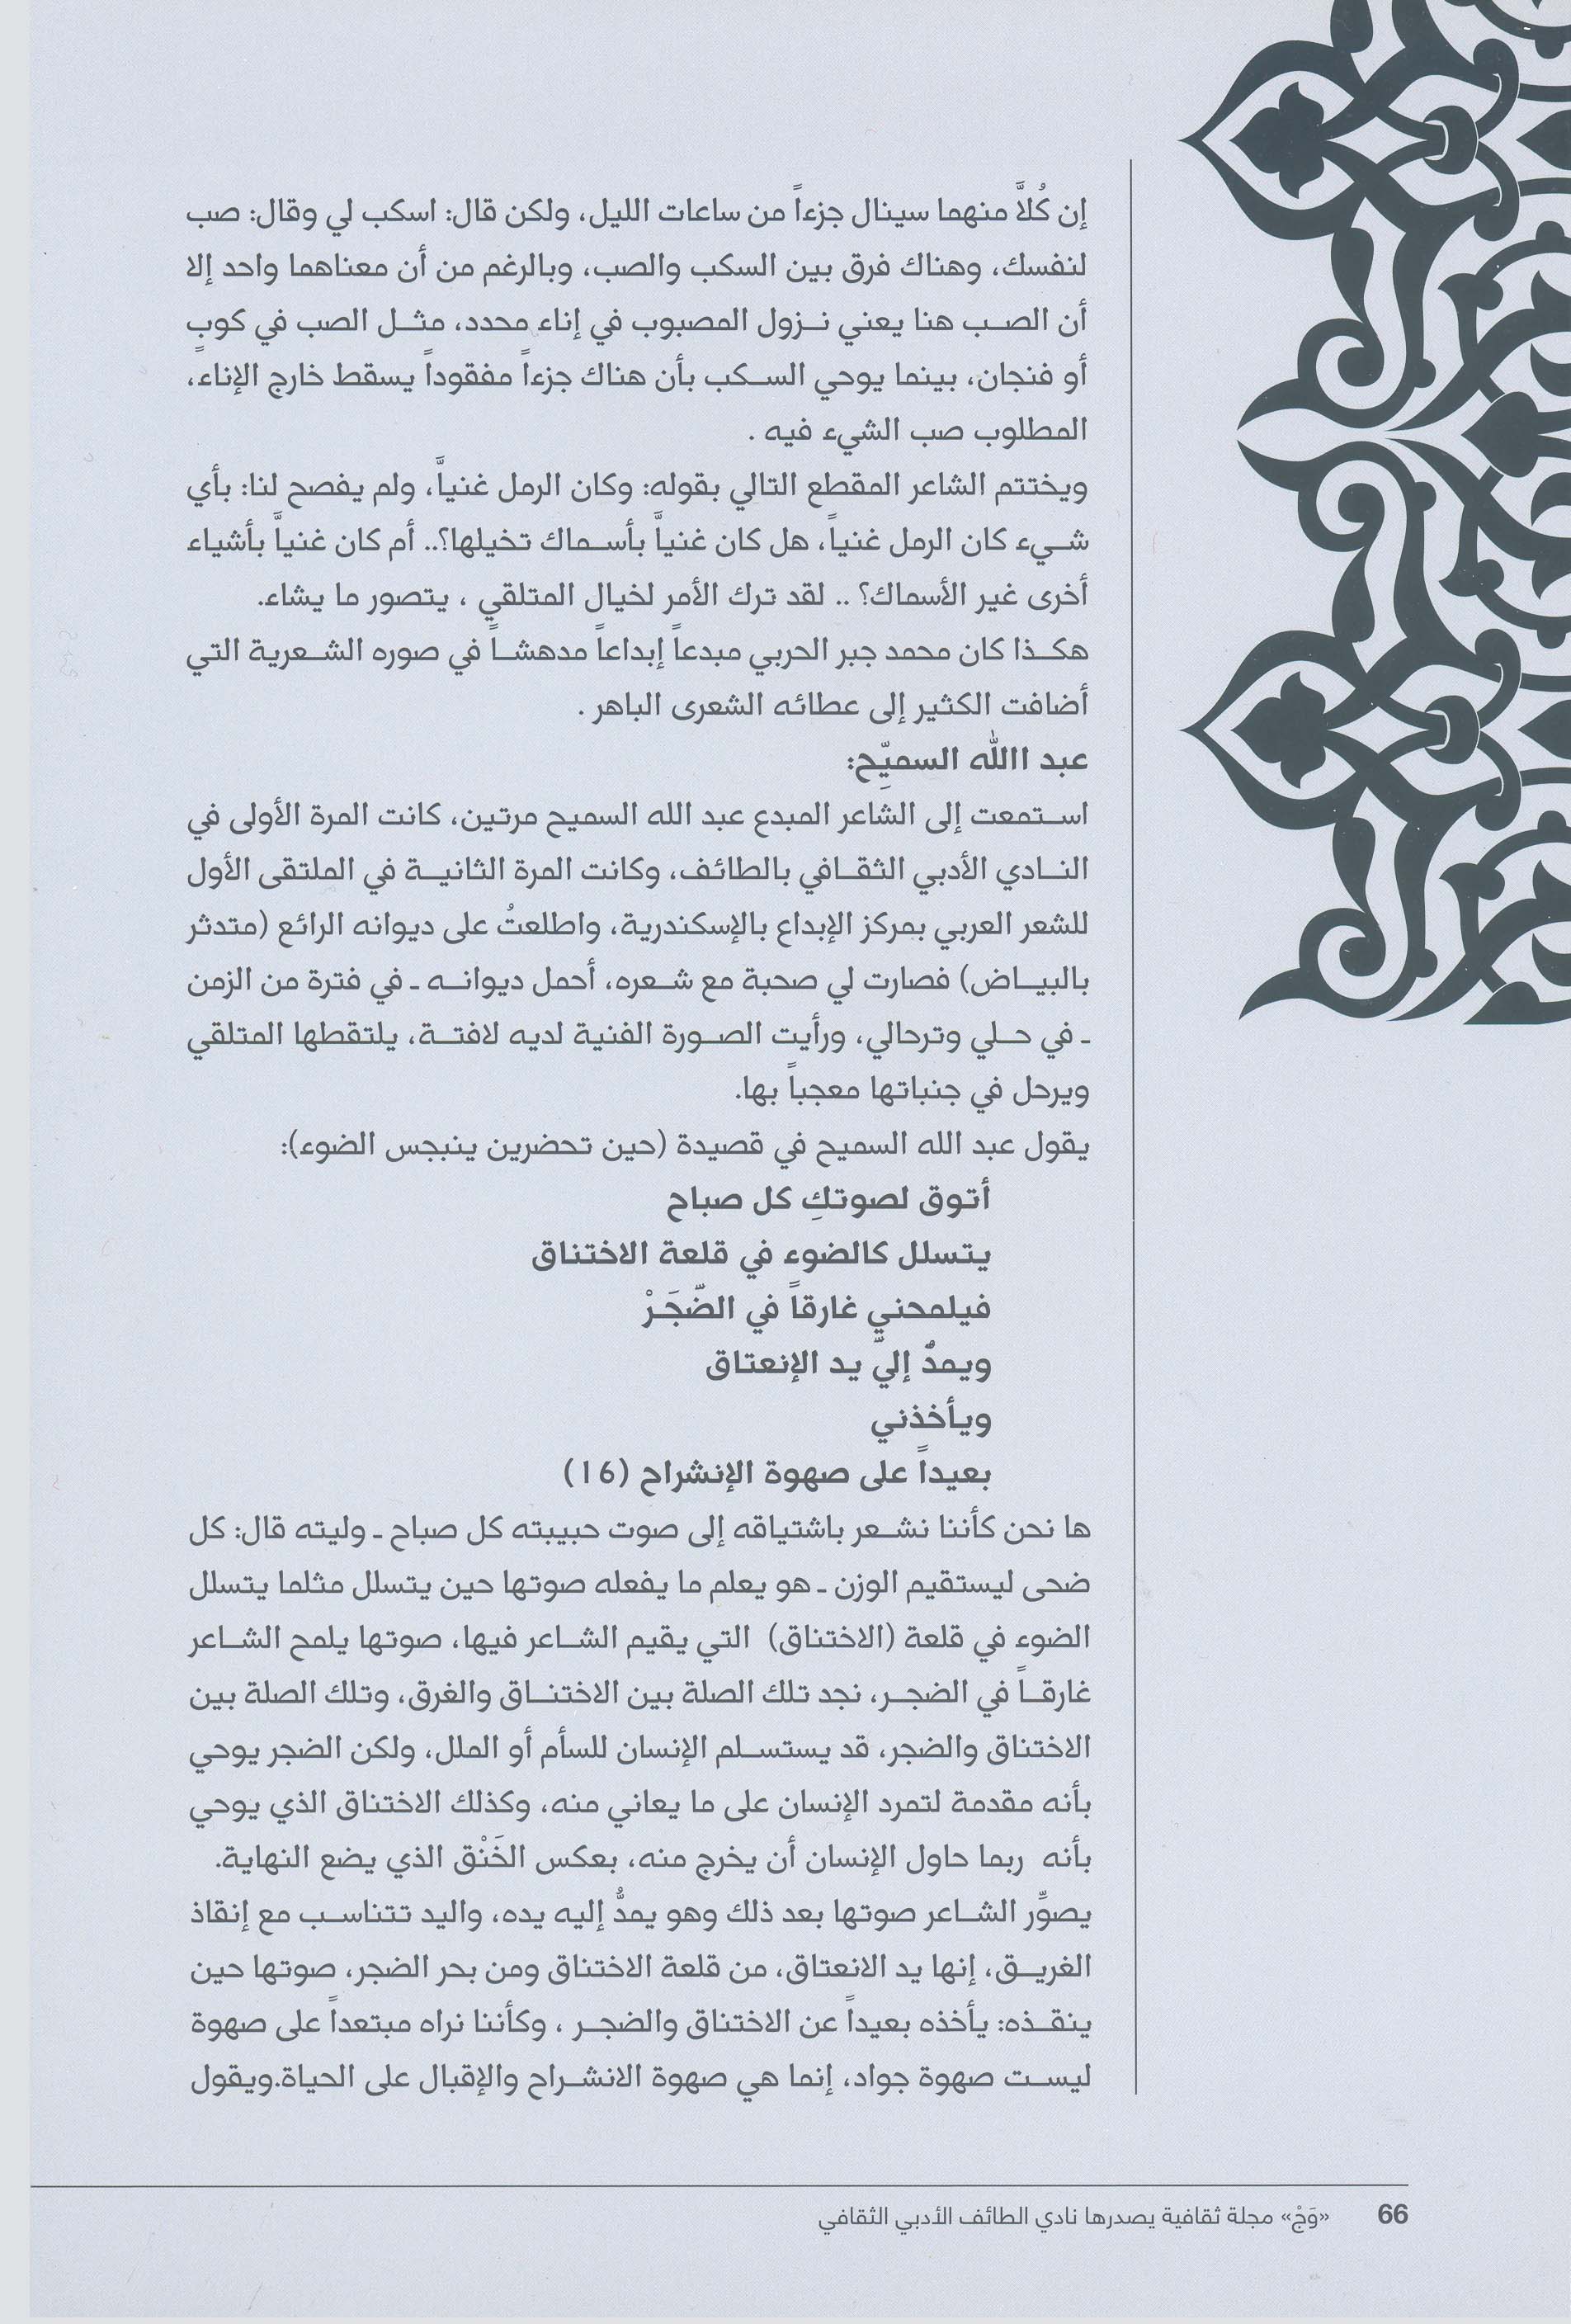 إن كُلاًّ منهما سينال جزءاً من ساعات الليل، ولكن قال: اسكب لي وقال: صب
لنفسك، وهناك فرق بين السكب والصب، وبالرغم من أن معناهما واحد إلا
أن الصب هنا يعني نزول المصبوب في إناء محدد، مثل الصب في كوبٍ
أو فنجان، بينما يوحي السكب بأن هناك جزءاً مفقوداً يسقط خارج الإناء،
المطلوب صب الشيء فيه .
ويختتم الشاعر المقطع التالي بقوله: وكان الرمل غنياًّ، ولم يفصح لنا: بأي
شيء كان الرمل غنياً، هل كان غنياًّ بأسماك تخيلها؟.. أم كان غنياًّ بأشياء
أخرى غير الأسماك؟ .. لقد ترك الأمر لخيال المتلقي ، يتصور ما يشاء.
هكذا كان محمد جبر الحربي مبدعاً إبداعاً مدهشاً في صوره الشعرية التي
أضافت الكثير إلى عطائه الشعرى الباهر .
عبد االله السميِّح:
استمعت إلى الشاعر المبدع عبد الله السميح مرتين، كانت المرة الأولى في
النادي الأدبي الثقافي بالطائف، وكانت المرة الثانية في الملتقى الأول
للشعر العربي بمركز الإبداع بالإسكندرية، واطلعتُ على ديوانه الرائع (متدثر
بالبياض) فصارت لي صحبة مع شعره، أحمل ديوانه ـ في فترة من الزمن
ـ في حلي وترحالي، ورأيت الصورة الفنية لديه لافتة، يلتقطها المتلقي
ويرحل في جنباتها معجباً بها.
يقول عبد الله السميح في قصيدة (حين تحضرين ينبجس الضوء):
أتوق لصوتكِ كل صباح
يتسلل كالضوء في قلعة الاختناق
فيلمحني غارقاً في الضّجَرْ
ويمدُّ إليّ يد الإنعتاق
ويأخذني
بعيداً على صهوة الإنشراح (16)
ها نحن كأننا نشعر باشتياقه إلى صوت حبيبته كل صباح ـ وليته قال: كل
ضحى ليستقيم الوزن ـ هو يعلم ما يفعله صوتها حين يتسلل مثلما يتسلل
الضوء في قلعة (الاختناق) التي يقيم الشاعر فيها، صوتها يلمح الشاعر
غارقاً في الضجر، نجد تلك الصلة بين الاختناق والغرق، وتلك الصلة بين
الاختناق والضجر، قد يستسلم الإنسان للسأم أو الملل، ولكن الضجر يوحي
بأنه مقدمة لتمرد الإنسان على ما يعاني منه، وكذلك الاختناق الذي يوحي
بأنه ربما حاول الإنسان أن يخرج منه، بعكس الخَنْق الذي يضع النهاية.
يصوِّر الشاعر صوتها بعد ذلك وهو يمدُّ إليه يده، واليد تتناسب مع إنقاذ
الغريق، إنها يد الانعتاق، من قلعة الاختناق ومن بحر الضجر، صوتها حين
ينقذه: يأخذه بعيداً عن الاختناق والضجر ، وكأننا نراه مبتعداً على صهوة
ليست صهوة جواد، إنما هي صهوة الانشراح والإقبال على الحياة.ويقول
66 «وَجْ» مجلة ثقافية يصدرها نادي الطائف الأدبي الثقافي